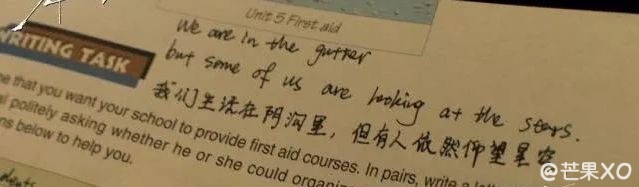 Unit 5 First aid
We are in the gutter
but some of us are looking at the stars.
我们生活在阴沟里，但有人依然仰望星空
WRITING TASK
ne that you want your school to provide first aid courses. In pairs, write a
al politely asking whether he or she could organi
ns below to help you.
dents
@芒果XO